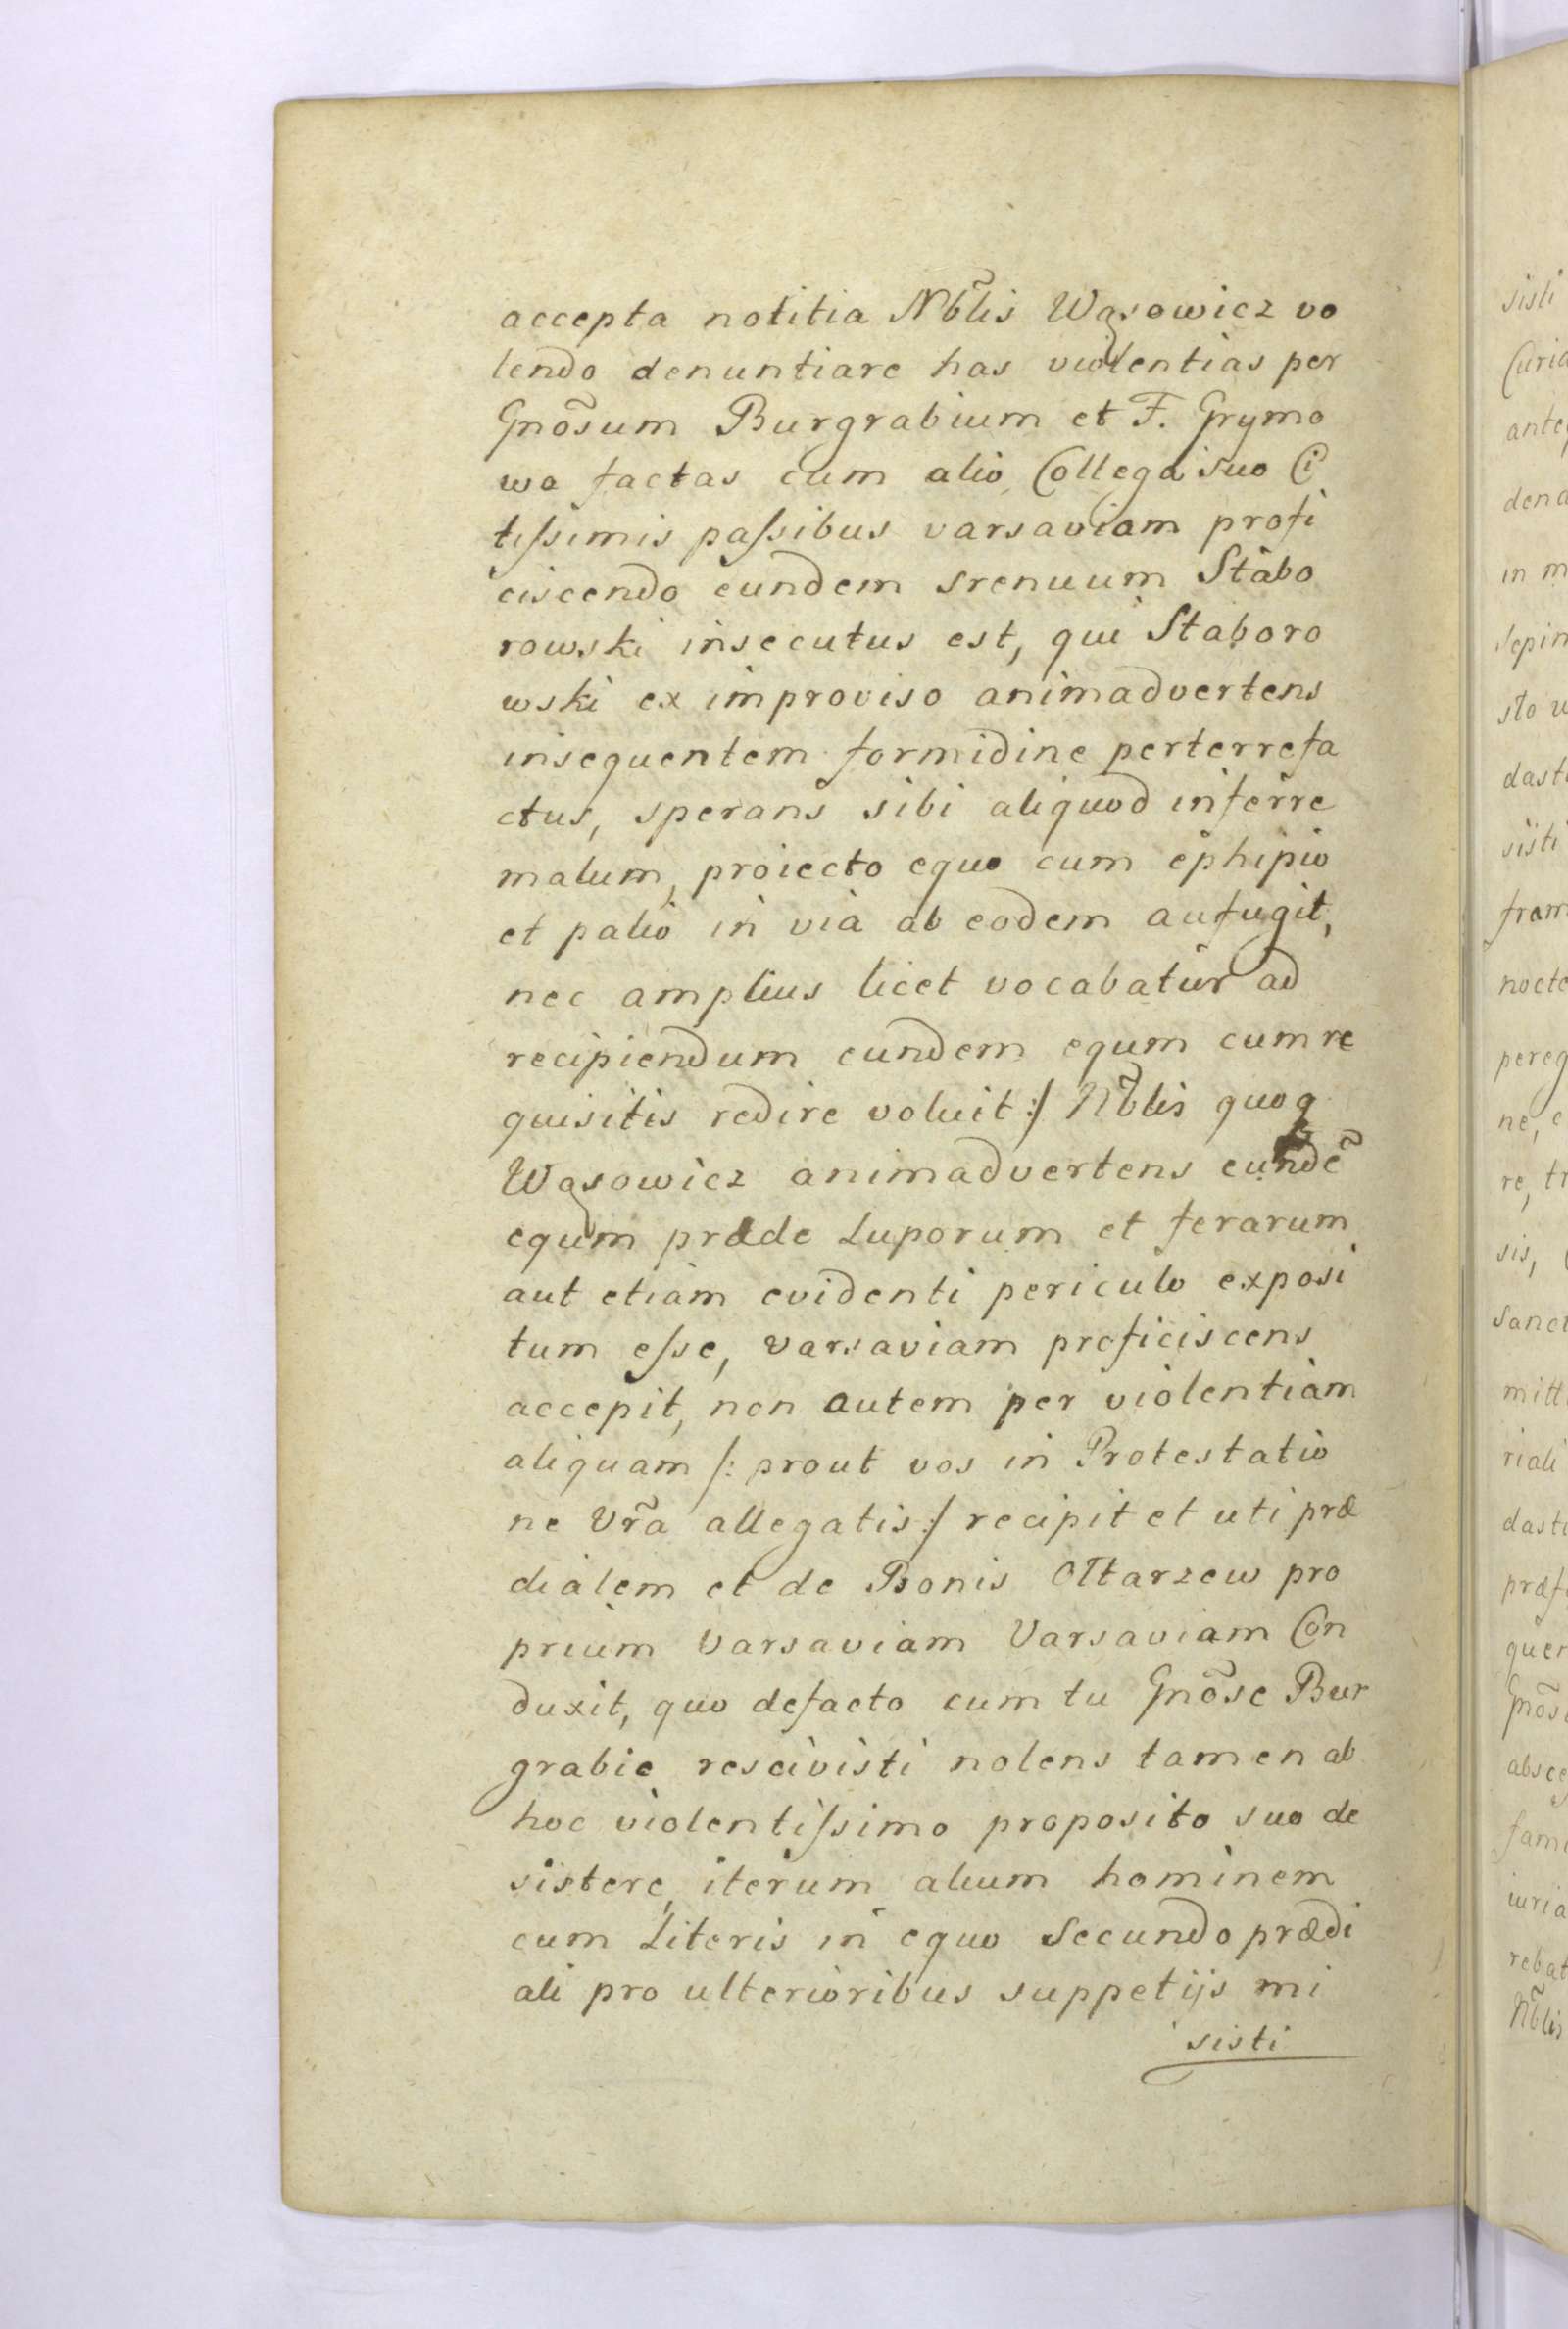 accepta notitia Nb̃lis Wąsowicz vo
lendo denuntiare has violentias per
Gnõsum Burgrabium et F. Grymo
wa factas cum alio Collega suo Ci
tiſsimis paſsibus varsaviam profi
ciscendo eundem srenuum Stabo
rowski insecutus est, qui Staboro
wski ex improviso animadvertens
insequentem formidine perterrefa
ctus, sperans sibi aliquod inferre
malum, proiecto equo cum ephipio
et palio in via ab eodem aufugit,
nec amplius licet vocabatur ad
recipiendum eundem equm cum re
quisitis redire voluit :/ Nb̃lis quoq
Wąsowicz animadvertens eundẽ
equm præde Luporum et ferarum
aut etiam evidenti periculo exposi
tum eſse, varsaviam proficiscens
accepit, non autem per violentiam
aliquam /: prout vos in Protestatio
ne Vr̃a allegatis :/ recipit et uti præ
dialem et de Bonis Ołtarzew pro
prium varsaviam Varsaviam Con
duxit, quo defacto cum tu Gnõse Bur
grabie rescivisti nolens tamen ab
hoc violentiſsimo proposito suo de
sistere, iterum alium hominem
cum Literis in equo Secundo prædi
ali pro ulterioribus suppetijs mi
sisti
sisti
Curia
dena
in m
sepim
sto u
dasti
sisti
fram
nocte
pereg
ne, e
re, tr
sis,
Sanct
mitt
riali
dasti
præf
quer
Gnõs
absce
fam
iuria
rebat
Nb̃lis